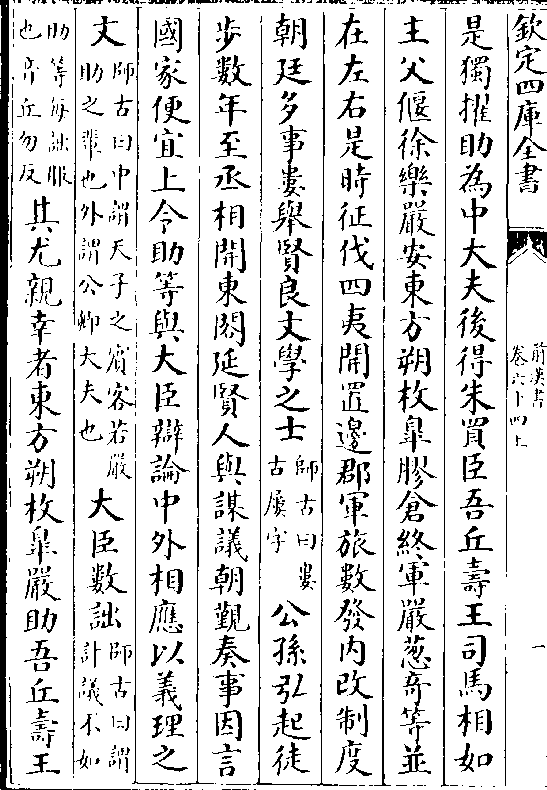 欽定四庫全書
前漢書
卷六十四上
一
是獨擢助為中大夫後得朱買臣吾丘壽王司馬相如
主父偃徐樂嚴安東方朔枚臯膠倉終軍嚴葱奇等並
在左右是時征伐四夷開置邊郡軍旅數發内改制度
朝廷多事婁舉賢良文學之士師古曰婁古屢字公孫弘起徒
步數年至丞相開東閣延賢人與謀議朝覲奏事因言
國家便宜上令助等與大臣辯論中外相應以義理之
文師古曰中謂天子之賓客若嚴助之輩也外謂公卿大夫也大臣數詘師古曰謂計議不如
助等每詘服也音丘勿反其尤親幸者東方朔枚臯嚴助吾丘壽王